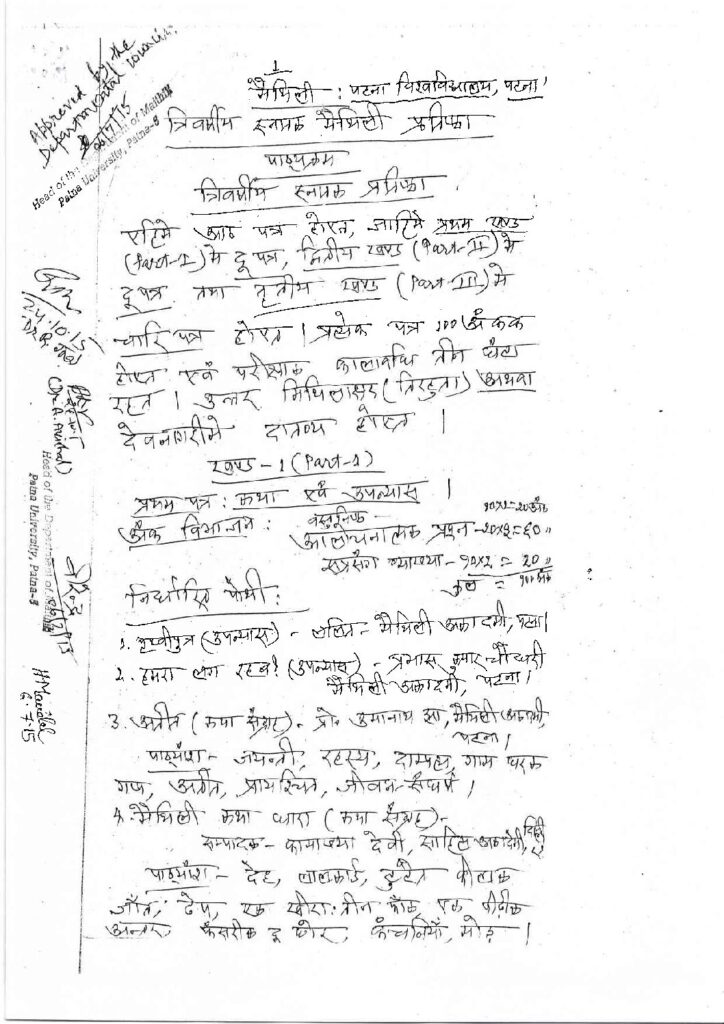 1
मैथिली : पटना विश्वविद्यालय, पटना।
त्रिवर्षीय स्नातक मैथिली प्रतिष्ठा
पाठ्यक्रम
त्रिवर्षीय स्नातक प्रतिष्ठा
एहिमे आठ पत्र होएत, जाहिमे प्रथम खण्ड
(Part-I) मे दू पत्र, द्वितीय खण्ड (Part-II) मे
दू पत्र तथा तृतीय खण्ड (Part III) मे
चारि पत्र होएत। प्रत्येक पत्र 100 अंकक
होएत एवं परीक्षाक कालावधि तीन घंटा
रहत। उत्तर मिथिलाक्षर (तिरहुता) अथवा
देवनागरीमे दातव्य होएत।
खण्ड-1 (Part-1)
प्रथम पत्र : कथा एवं उपन्यास।
अंक विभाजन : वस्तुनिष्ठ - १०x२=२० अंक
आलोचनात्मक प्रश्न - २०x३=६० "
सप्रसंग व्याख्या - १०x२ = २० "
कुल = १०० अंक
निर्धारित पोथी :
1. पृथ्वीपुत्र (उपन्यास) - ललित - मैथिली अकादमी, पटना।
2. हमरा लग रहब? (उपन्यास) - प्रभास कुमार चौधरी
मैथिली अकादमी, पटना।
3. अतीत (कथा संग्रह) - प्रो० उमानाथ झा, मैथिली अकादमी,
पटना।
पाठ्यांश - जयन्ती, रहस्य, दाम्पत्य, गाम घरक
गप, अतीत, प्रायश्चित, जीवन-संघर्ष।
4. मैथिली कथा धारा (कथा संग्रह) -
सम्पादक - कामाख्या देवी, साहित्य अकादेमी, दिल्ली
पाठ्यांश - देह, लालकार्ड, टुटैत कीलक
जाँत, ढेप, एक खीरा : तीन फाँक, एक पीढ़ीक
अन्तर, केसरीक दू छोर, कंचनियाँ, मोड़।
Approved by the
Departmental Council.
Head of the Department of Maithili
Patna University, Patna-5
24.10.15
Head of the Department of Maithili
Patna University, Patna-5
6.7.15